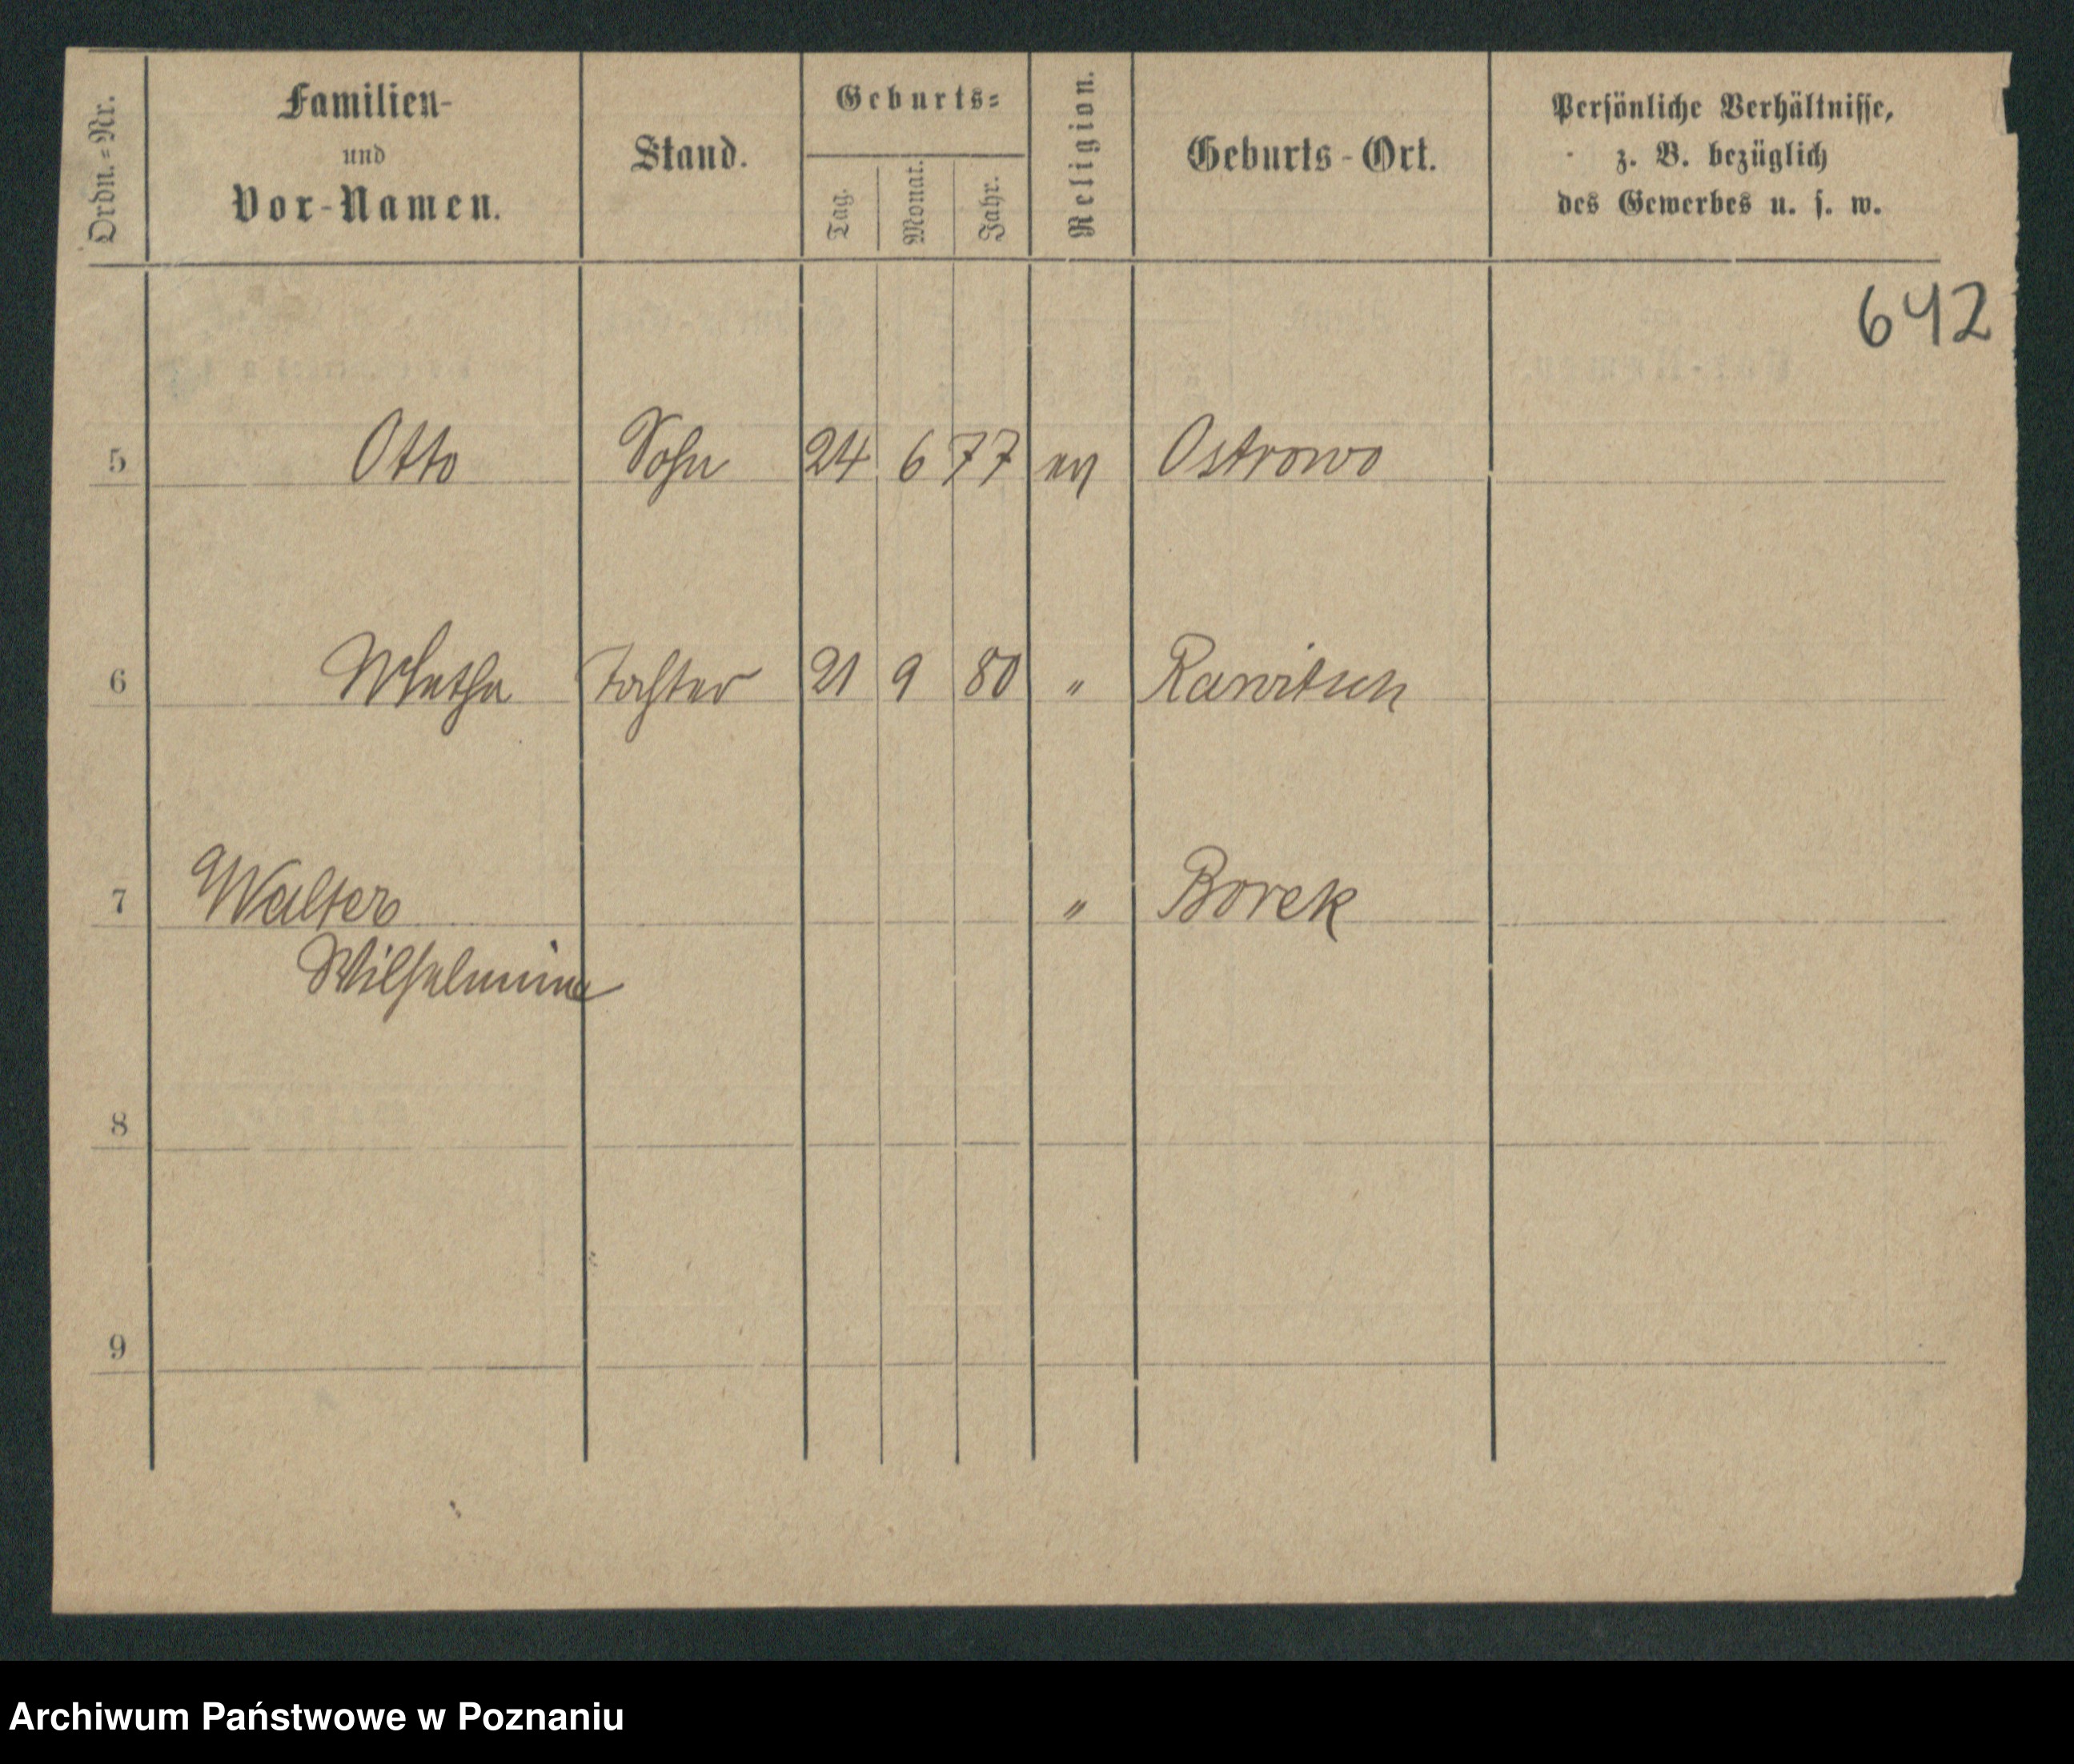 Ordn.=Nr.
Familien-
und
Vor-Namen.
Stand.
Geburts=
Tag.
Monat.
Jahr.
Religion.
Geburts-Ort.
Persönliche Verhältnisse,
z. B. bezüglich
des Gewerbes u. s. w.
642
5 Otto Sohn 24 6 77 ev Ostrowo
6 Tochter 21 9 80 " Rawitsch
7 Walter " Borek
Wilhelmine
8
9
Archiwum Państwowe w Poznaniu